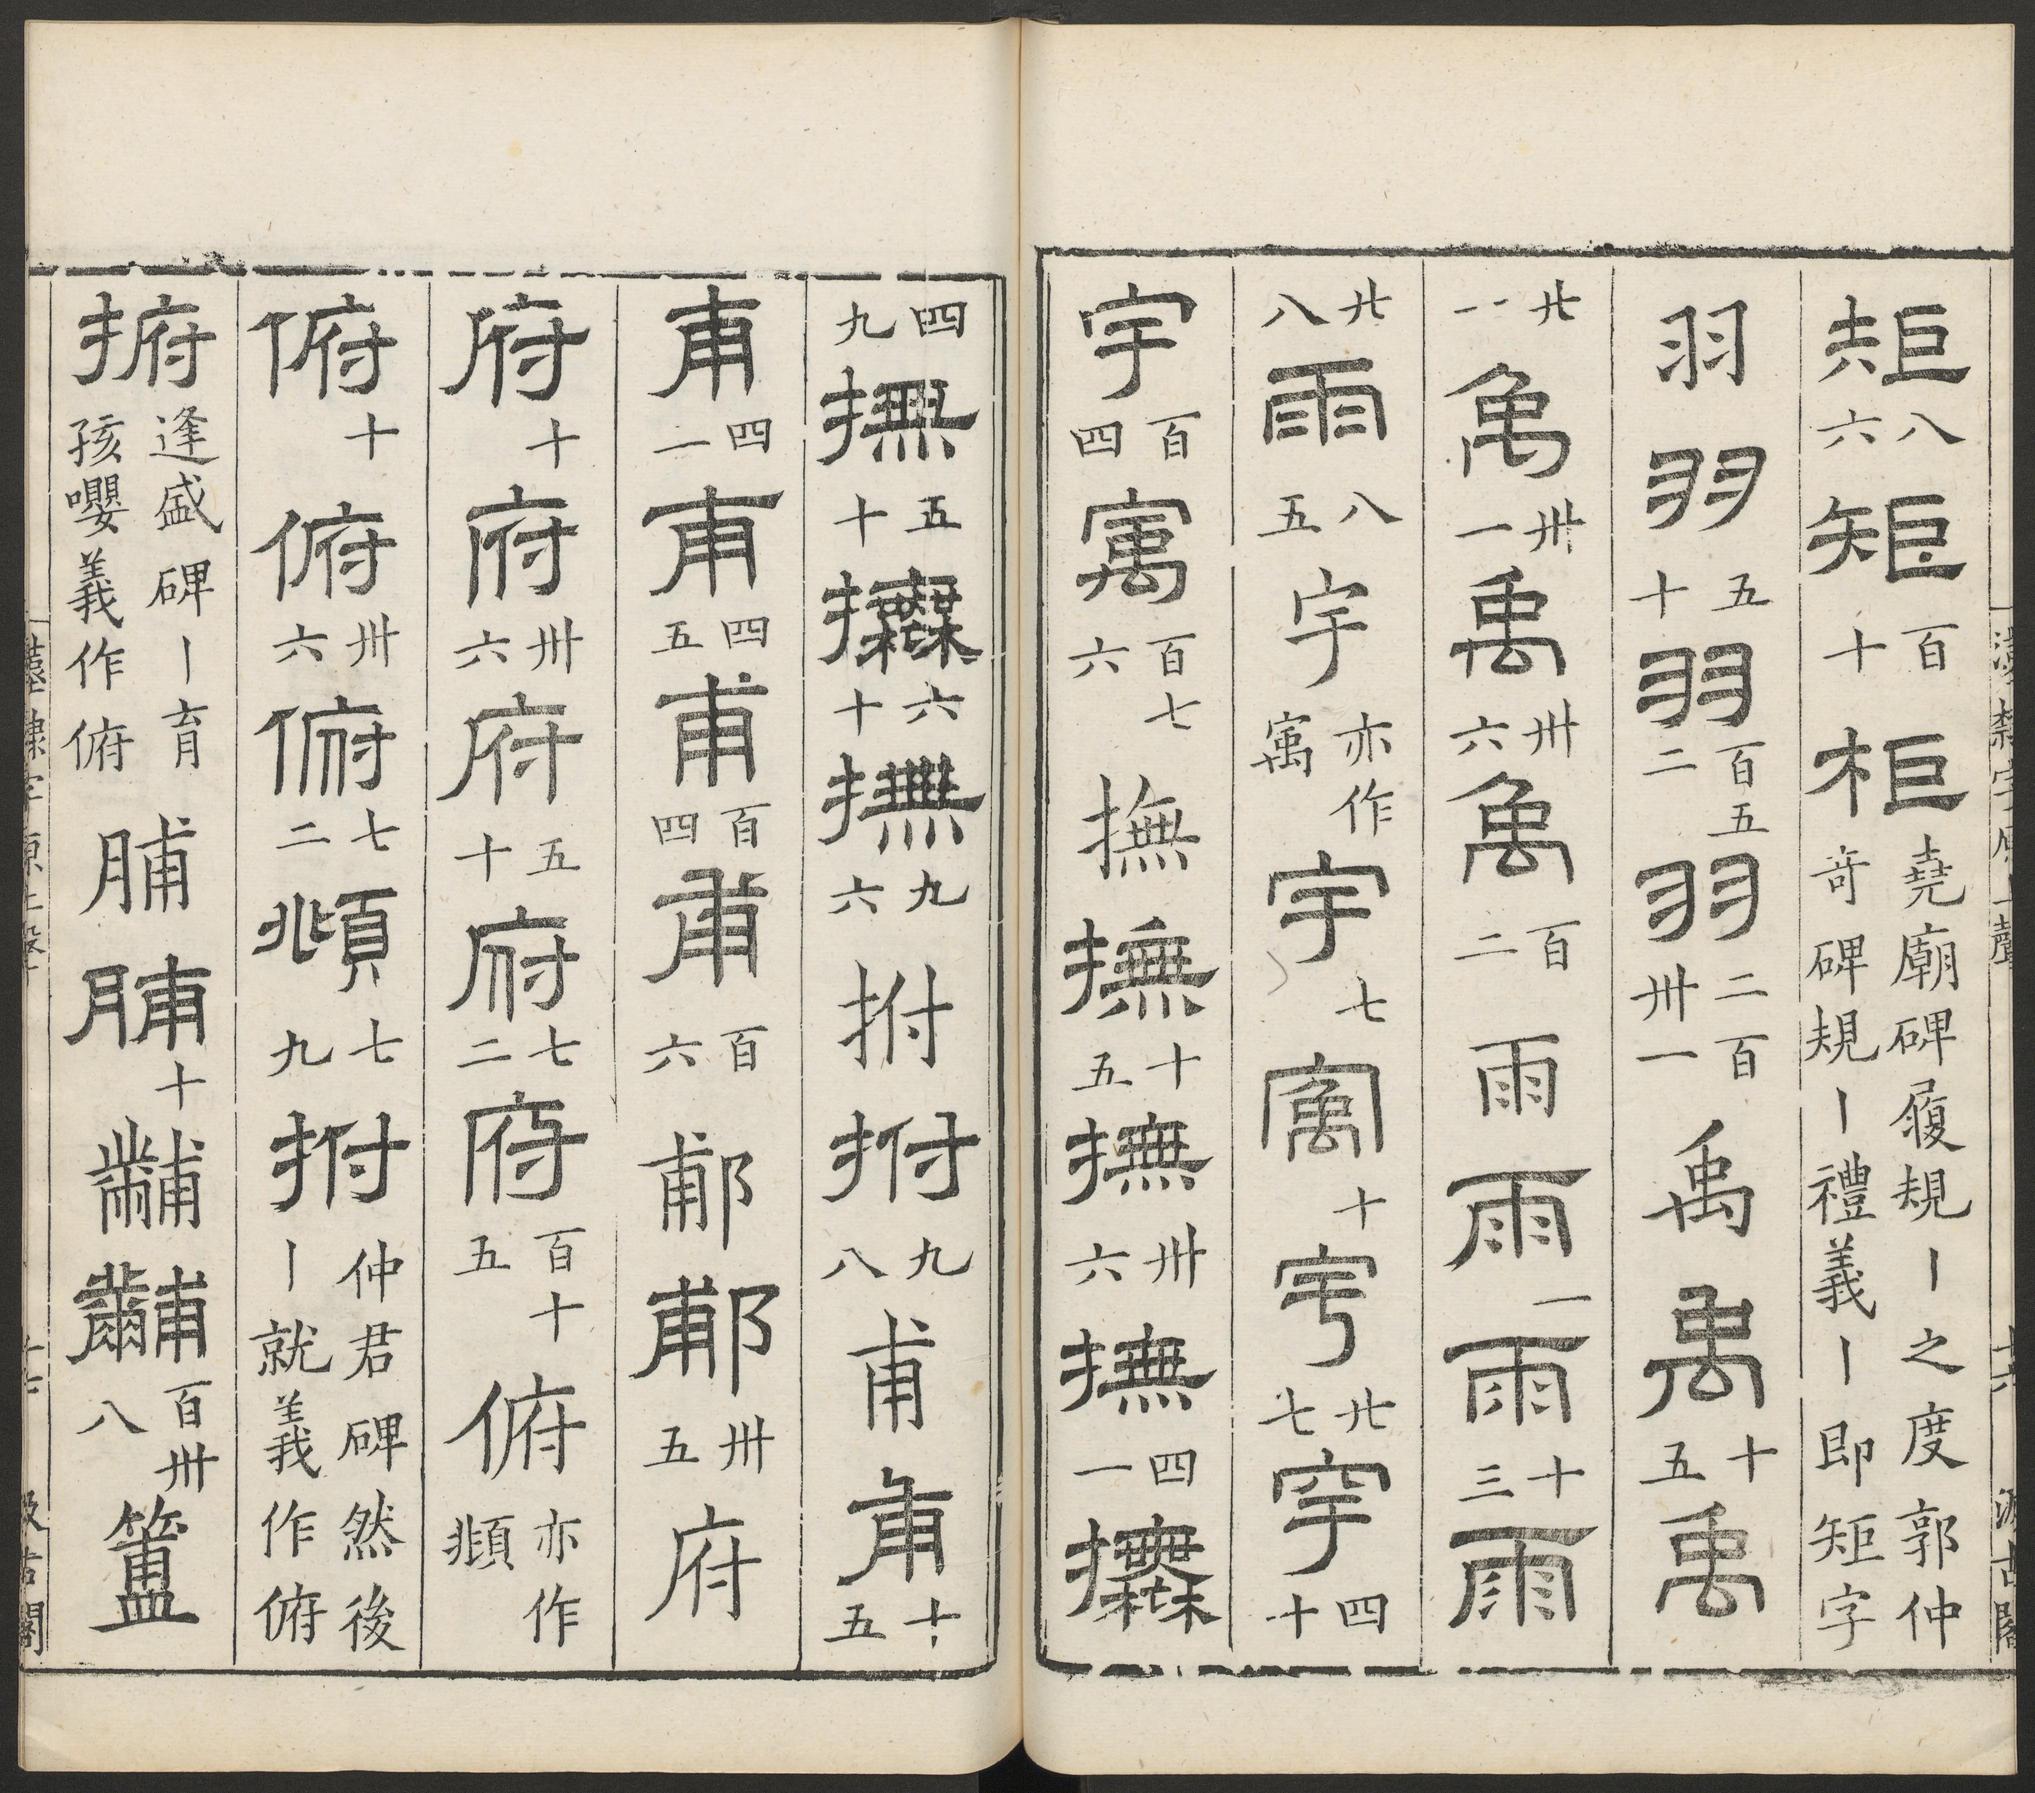 矩八六矩百十柜堯廟碑履規丨之度郭仲奇碑規丨禮義丨即矩字
羽羽五十羽百五二羽二百卅一禹禹十五禹
廿一禹卅一禹卅六禹百二雨雨一雨十三雨
廿八雨八五宇亦作㝢宇七㝢十宇廿七宇四十
宇百四㝢百七六撫撫十五撫卅六撫四一撫
四九撫五十撫六十撫九六拊拊九八甫甫十五
甫四一甫四五甫百四甫百六郙郙卅五府
府十府卅六府五十府七二府百十五俯亦作頫
俯十俯卅六俯七二頫七九拊仲君碑然後丨就義作俯
捬逢盛碑丨育孩嚶義作俯脯脯十黼黼百卅八簠
漢隸字原上聲 十六 汲古閣
漢隸字原上聲 十七 汲古閣